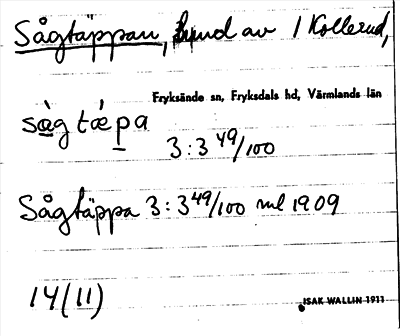 Sågtäppan, hund av 1 Kollerud,
Fryksände sn, Fryksdals hd, Värmlands län
sàg tǽpa
3:3 49/100
Sågtäppa 3:3 49/100 ml 1909
14(11)
ISAK WALLIN 1911